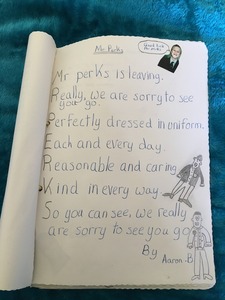 Mr Perks
Good luck
Mr perks
Mr perks is leaving.
Really, we are sorry to see
you go.
Perfectly dressed in uniform,
Each and every day.
Reasonable and caring
Kind in every way.
So you can see, we really
are sorry to see you go
By
Aaron B